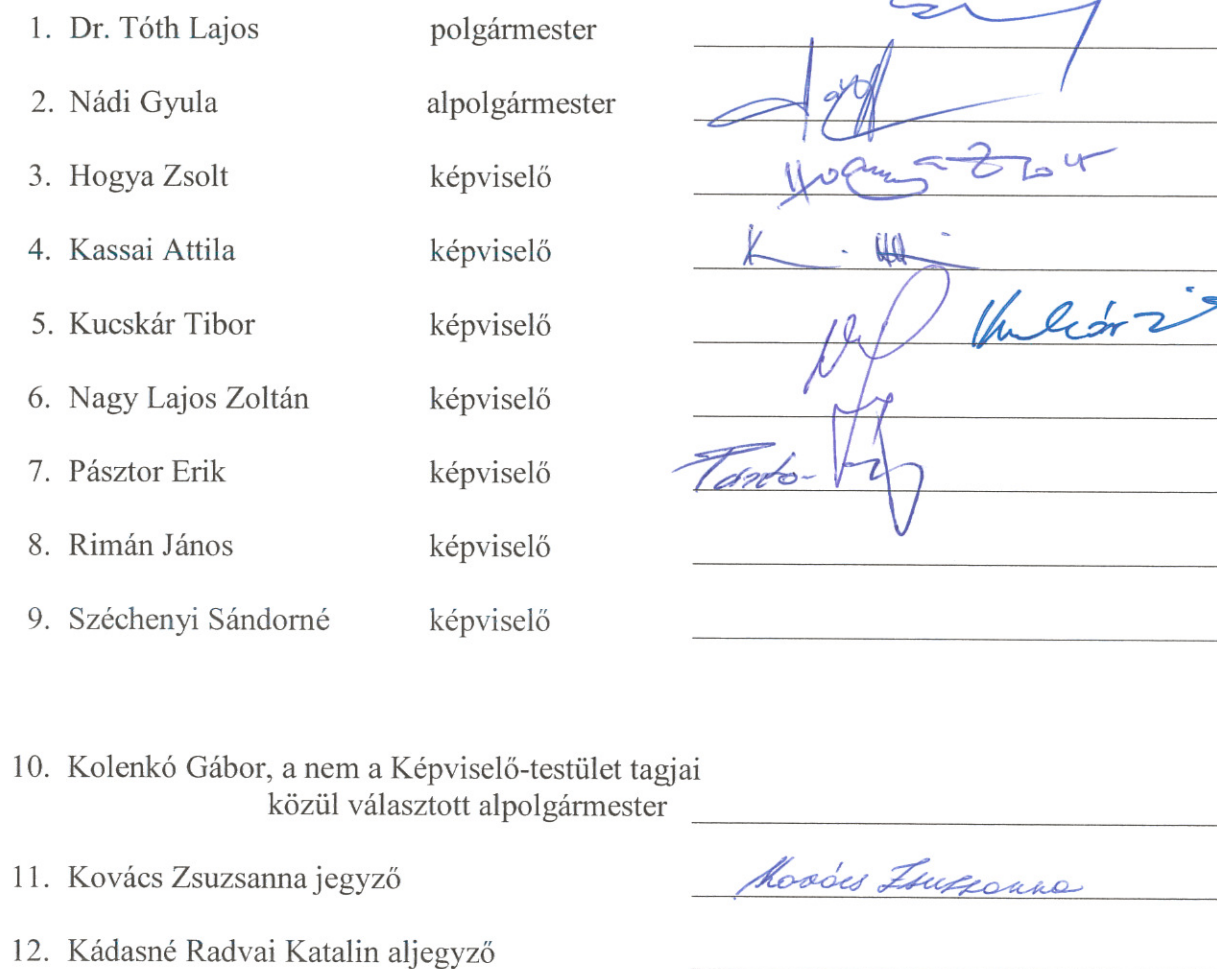 1. Dr. Tóth Lajos polgármester
2. Nádi Gyula alpolgármester
3. Hogya Zsolt képviselő Hogya Zsolt
4. Kassai Attila képviselő
5. Kucskár Tibor képviselő
6. Nagy Lajos Zoltán képviselő
7. Pásztor Erik képviselő
8. Rimán János képviselő
9. Széchenyi Sándorné képviselő
10. Kolenkó Gábor, a nem a Képviselő-testület tagjai
közül választott alpolgármester
11. Kovács Zsuzsanna jegyző Kovács Zsuzsanna
12. Kádasné Radvai Katalin aljegyző